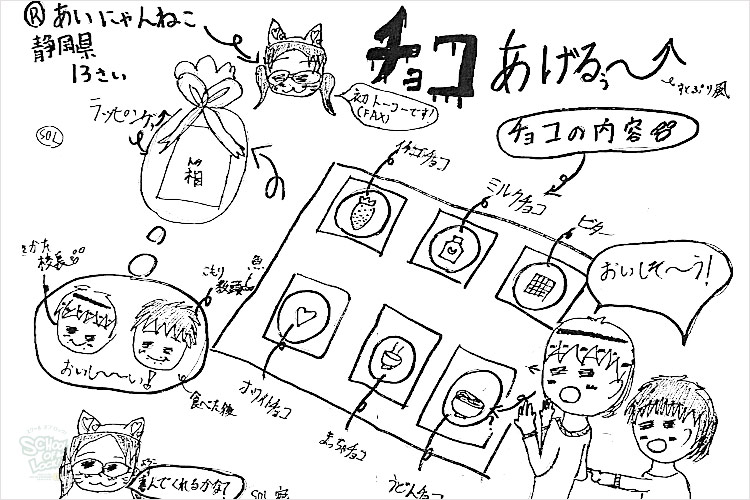 Ⓡあいにゃんねこ
静岡県
13さい
チョコあげるぅ〜
初トーコーです!
(FAX)
ラッピング
SOL
相
チョコの内容
イチゴチョコ
ミルクチョコ
ビター
ホワイトチョコ
まっちゃチョコ
うどんチョコ
おいしそ〜う!
さかた
校長
こもり
教頭
魚
おいし〜〜い!
食べた後
喜んでくれるかな?
SOL 宛